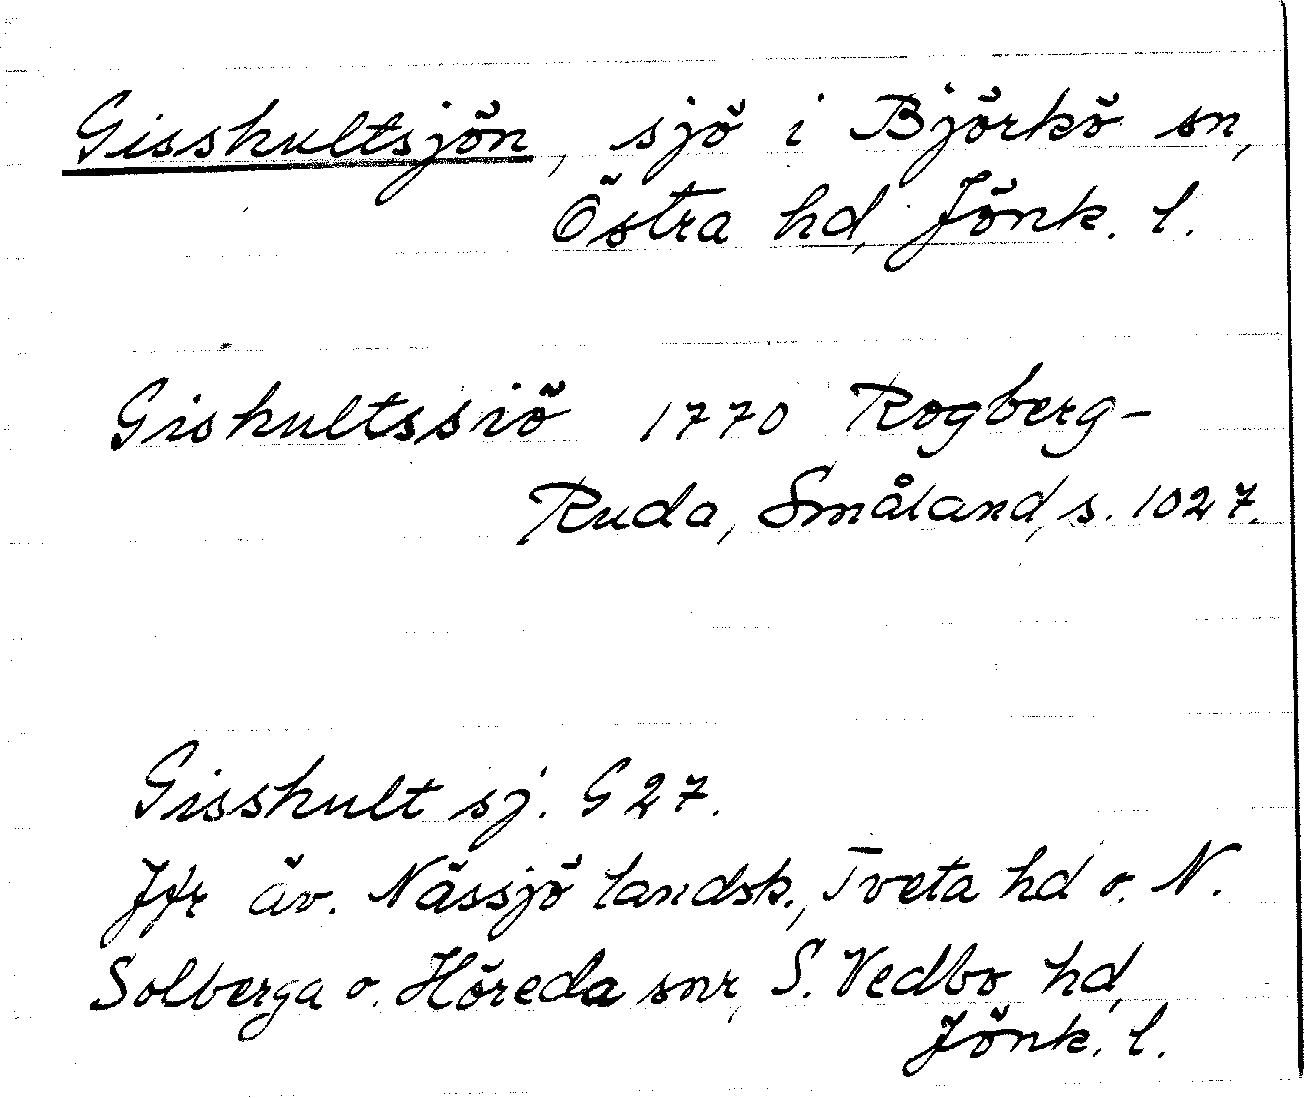 Gisshultsjön, sjö i Björkö sn,
Östra hd, Jönk. l.
Gishultssiö 1770 Rogberg-
Ruda, Småland, s. 1027.
Gisshult sj. G 27.
Jfr äv. Nässjö landsk., Tveta hd o. N.
Solberga o. Höreda snr, S. Vedbo hd,
Jönk. l.